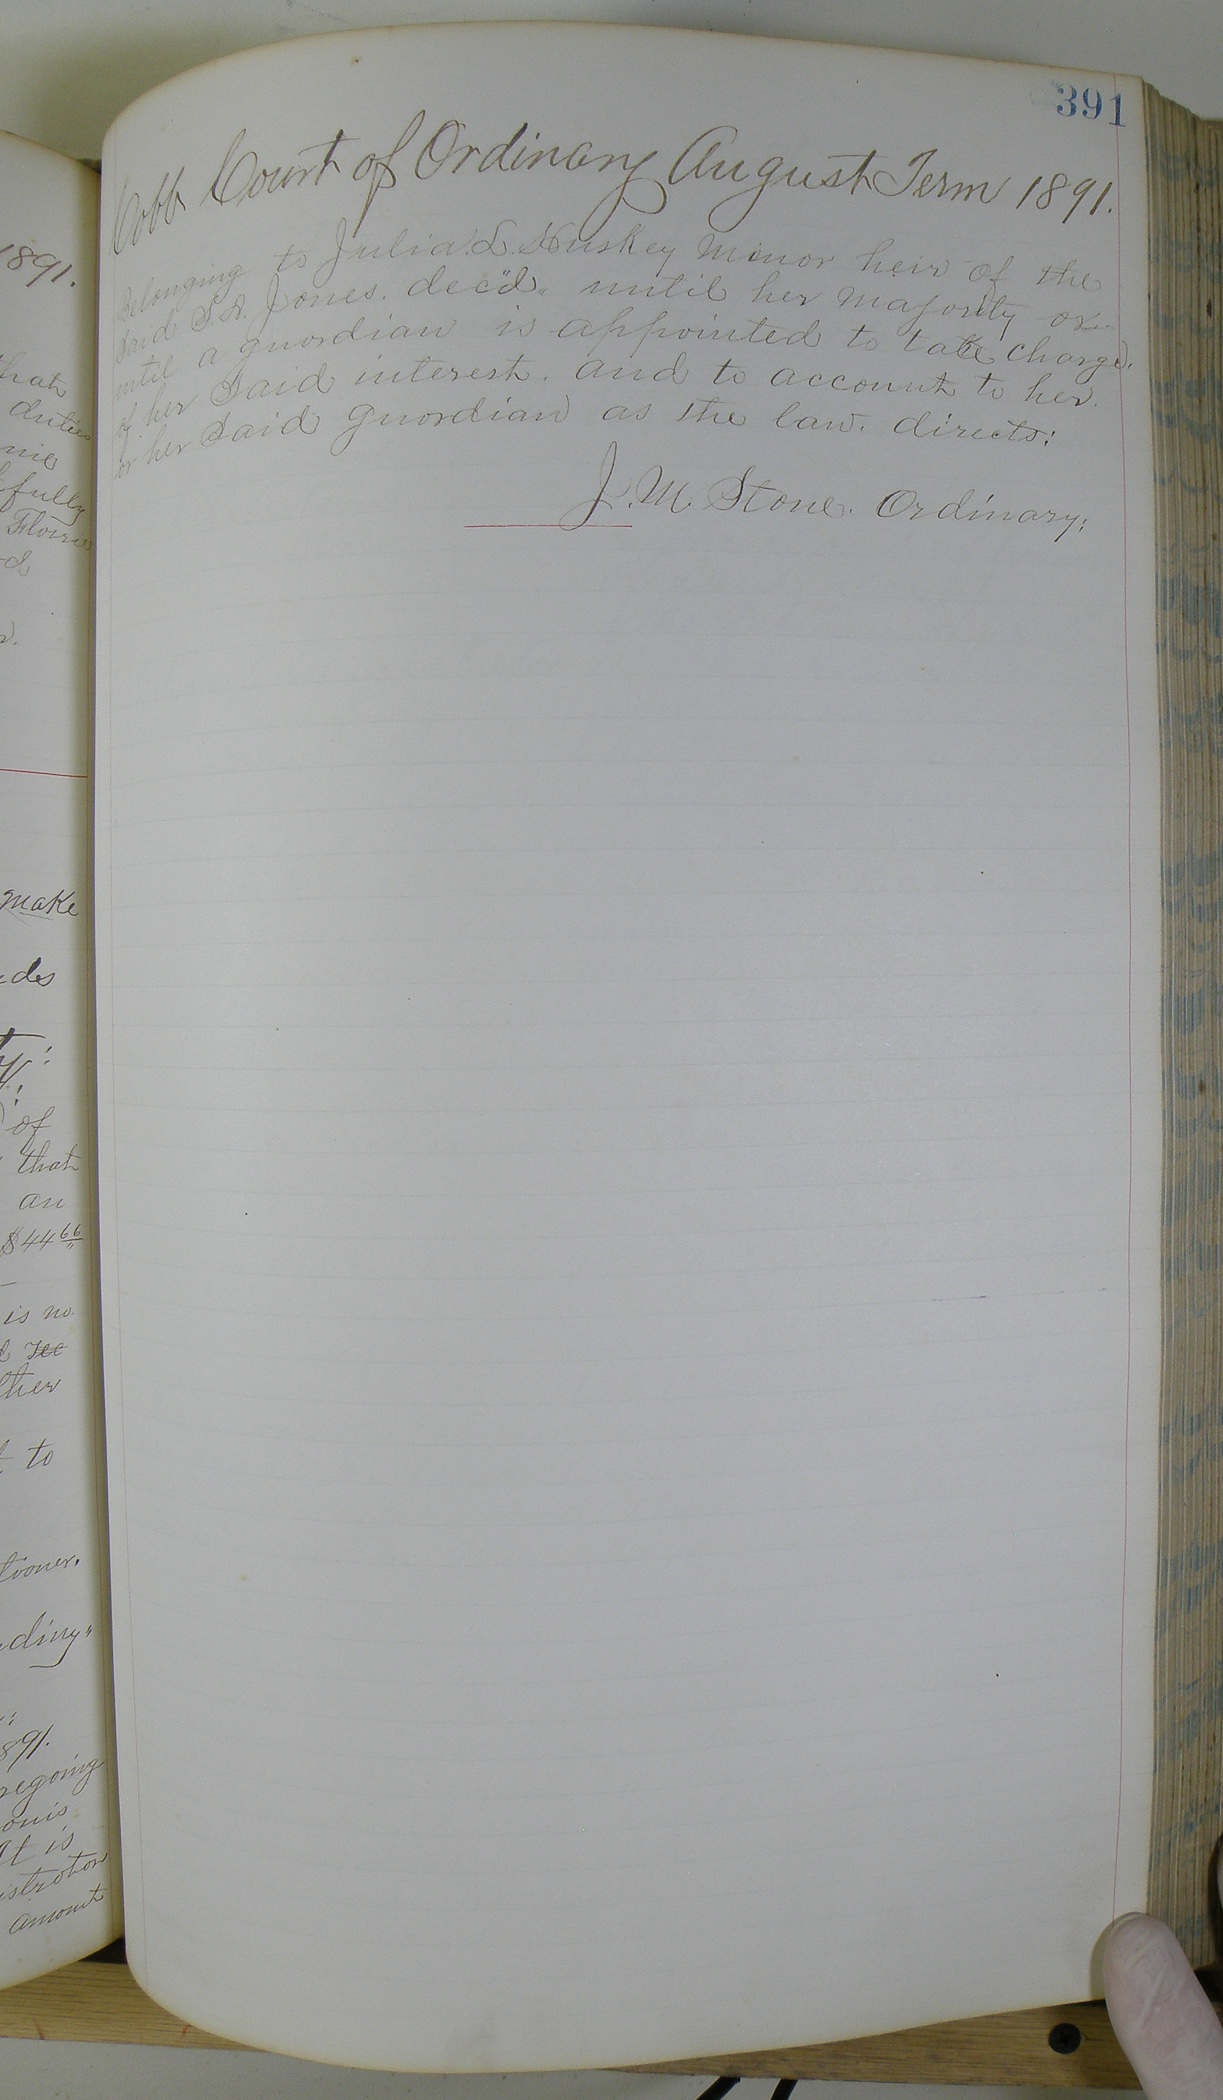 391
Cobb Court of Ordinary August Term 1891.
Belonging to Julia L. Huskey Minor heir of the
Said S. A. Jones. dec'd. until her majority or
until a guardian is appointed to take charge.
of her Said interest. and to account to her.
or her Said guardian as the law. directs:
J. M. Stone. Ordinary;
1891.
that
duties
fully
make
of
that
an
$44 66
is no.
to
1891.
At is
amount